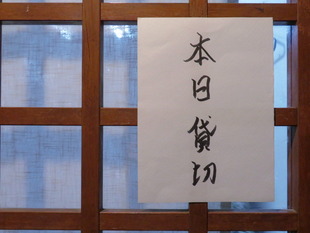 本日貸切